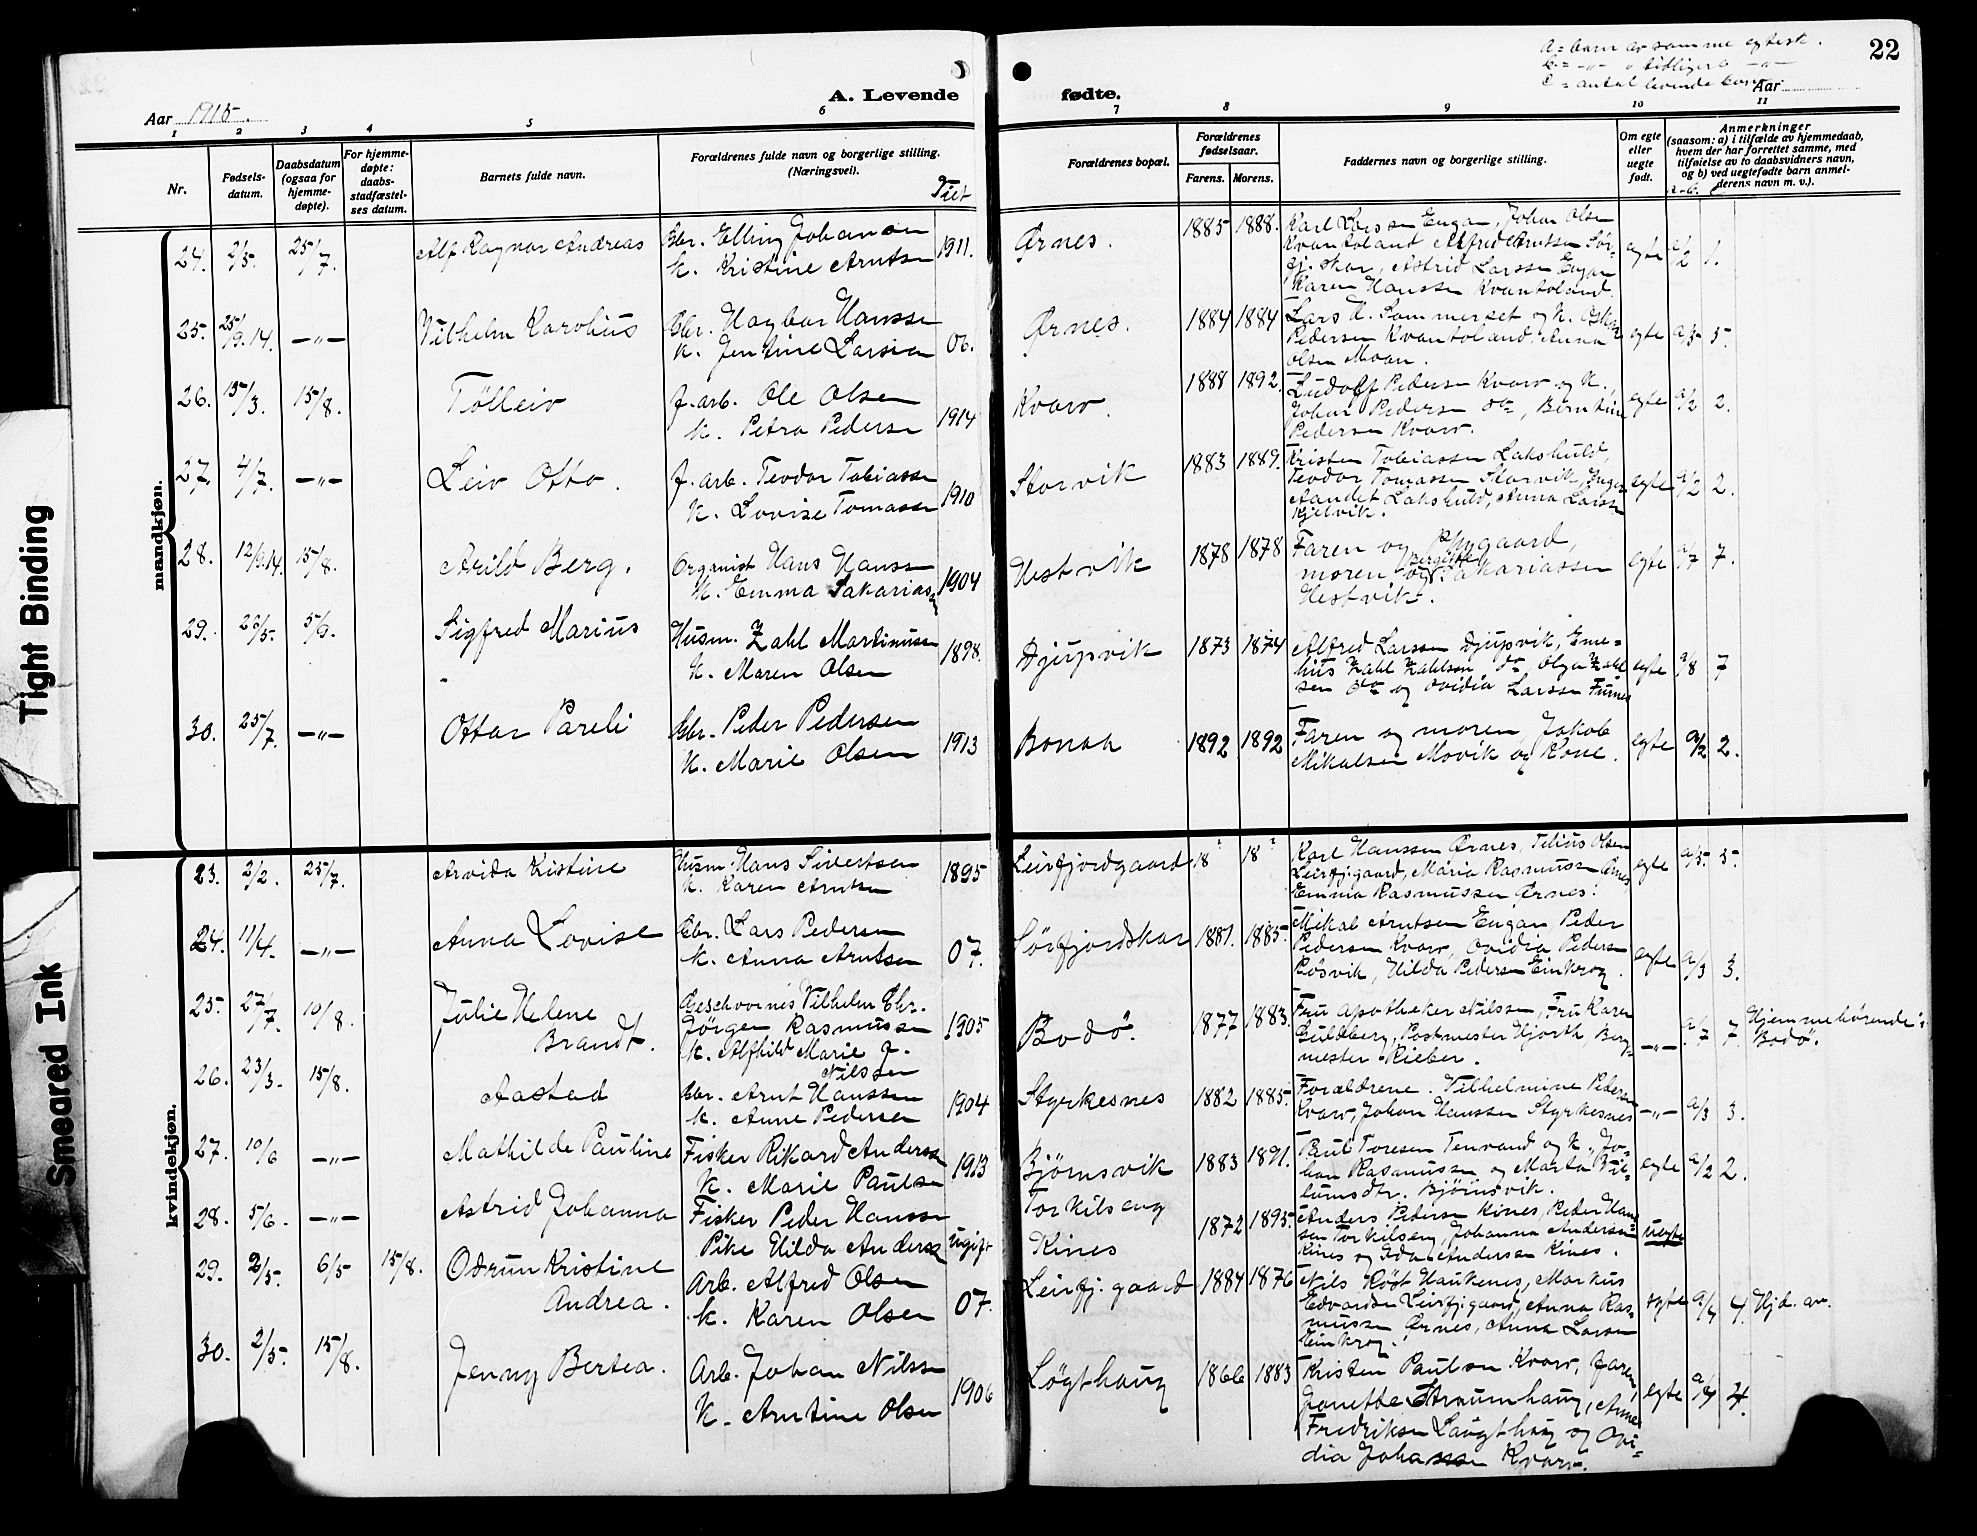 a = barn av samme egtesk.
b = -"- " tidligere -"-
c = antal levende barn
22
A. Levende fødte.
Aar 1915.
Aar
1 2 3 4 5 6 7 8 9 10 11
Nr.
Fødsels-
datum.
Daabsdatum
(ogsaa for
hjemme-
døpte).
For hjemme-
døpte:
daabs-
stadfæstel-
ses datum.
Barnets fulde navn.
Forældrenes fulde navn og borgerlige stilling.
(Næringsvei).
Viet
Forældrenes bopæl.
Forældrenes
fødselsaar.
Farens. Morens.
Faddernes navn og borgerlige stilling.
Om egte
eller
uegte
født.
Anmerkninger
(saasom: a) i tilfælde av hjemmedaab,
hvem der har forrettet samme, med
tilføielse av to daabsvidners navn,
og b) ved uegtefødte barn anmel-
derens navn m. v.).
mandkjøn.
24. 2/5. 25/7. Alf Ragnar Andreas
Gbr. Elling Johansen
K. Kristine Arntsen 1911.
Ørnes. 1885 1888.
Karl Larssen Engan, Johan Olsen
Kvantoland Alfred Arntsen Sør-
fj. skar, Astrid Larssen Engan
Karen Hanssen Kvantoland.
egte a/2 1.
25. 25/9.14. -"- Vilhelm Karolius
Gbr. Hagbar Hanssen
K. Jentine Larsen 06.
Ørnes. 1884 1884
Lars K. Sommerset og K. Oskar
Pedersen Kvantoland, Anna
Olsen Moan.
egte a/5 5.
26. 15/3. 15/8. Tølleiv
J.arb. Ole Olsen
K. Petra Pedersen 1914
Kvarv. 1888 1892.
Ludolf Pedersen Kvarv og K.,
Johan Pedersen do, Berntine
Pedersen Kvarv.
egte a/2 2.
27. 4/7. -"- Leiv Otto.
J. arb. Teodor Tobiassen
K. Lovise Tomassen 1910
Storvik 1883 1889.
Kristen Tobiassen Lakshuld,
Teodor Tomassen Storvik, Inger
Aandet Lakshuld, Anna Larssen
Kjelvik.
egte a/2 2.
28. 12/9.14. 15/8. Arild Berg.
Organist Hans Hanssen
K. Emma Sakariassen 1904
Hestvik 1878 1878
Faren og Nygaard,
moren og Bergitte Sakariassen
Hestvik.
egte a/7 7.
29. 23/5. 5/9. Sigfred Marius
Husm. Zahl Martinussen
K. Maren Olsen 1898.
Djupvik 1873 1874
Alfred Larssen Djupvik, Eme-
lius Zahl Zahlsen do, Olga Zahl
sen do og Ovidia Larssen Furnes
egte a/8 7
30. 25/7. -"- Ottar Pareli
Gbr. Peder Pedersen
K. Marie Olsen 1913
Bonaa 1892 1892
Faren og moren, Jakob
Mikalsen Movik og Kone.
egte a/2 2.
kvindekjøn.
23. 2/2. 25/7. Arvida Kristine
Husm. Hans Sivertsen
K. Karen Arntsen 1895
Leirfjordgaard 18? 18?
Karl Hanssen Ørnes, Tilius Olsen
Leirfj.gaard, Maria Rasmussen Ørnes
Emma Rasmussen Ørnes.
egte a/5. 5.
24. 11/4. -"- Anna Lovise
Gbr. Lars Pedersen
K. Anna Arntsen 07.
Sørfjordskar 1881. 1885.
Mikal Arntsen Engan, Peder
Pedersen Kvarv, Ovidia Pedersen
Røsvik, Hilda Pedersen Einkrog.
egte a/3 3.
25. 27/7. 10/8. Julie Helene
Brandt.
Geschvornes Vilhelm Chr.
Jørgen Rasmussen
K. Alfhild Marie J.
Nilssen 1905
Bodø. 1877 1883.
Fru Apotheker Nilssen, Fru Karen
Guldberg, Postmester Hjorth, Berg-
mester Rieber.
-"- a/7 7. Hjemmehørende i
Bodø.
26. 23/3. 15/8. Aastad
Gbr. Arnt Hanssen
K. Anne Pedersen 1904
Styrkesnes 1882 1885.
Forældrene. Vilhelmine Pedersen
Kvarv, Johan Hanssen Styrkesnes
-"- a/3 3.
27. 10/6 -"- Mathilde Pauline
Fisker Rikard Anderssen
K. Marie Paulsen 1913
Bjørnsvik 1883 1891.
Paul Toresen Tenvand og K., Jo-
han Rasmussen og Marta Vil-
lumsdtr. Bjørnsvik.
egte a/2 2.
28. 5/6. -"- Astrid Johanna
Fisker Peder Hanssen
Pike Hilda Anderssen Ugift
Torkilseng
Kines 1872 1895.
Anders Pedersen Kines, Peder Hans
sen Torkilseng, Johanna Andersen
Kines og Ida Andersen Kines.
uegte
29. 2/5. 6/5 15/8. Odrun Kristine
Andrea.
Arb. Alfred Olsen
K. Karen Olsen 07.
Leirfj. gaard 1884 1876
Nils Røgt Haukenes, Markus
Edvardsen Leirfj.gaard, Anna Ras-
mussen Ørnes, Anna Larsen
Einkrog.
egte a/4 4. Hjd. av.
30. 2/5. 15/8. Jenny Bertea.
Arb. Johan Nilssen
K. Arntine Olsen 1906
Løgthaug 1866 1883
Kristen Paulsen Kvarv, faren,
Janette Straumhaug, Anne
Fredriksen Laugthaug og Ovi-
dia Johansen Kvarv.
egte a/4 4.
Tight Binding
Smeared Ink